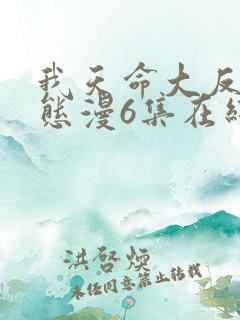 我天命大反
态漫6集在线
洪啓煥
未经同意禁止转载